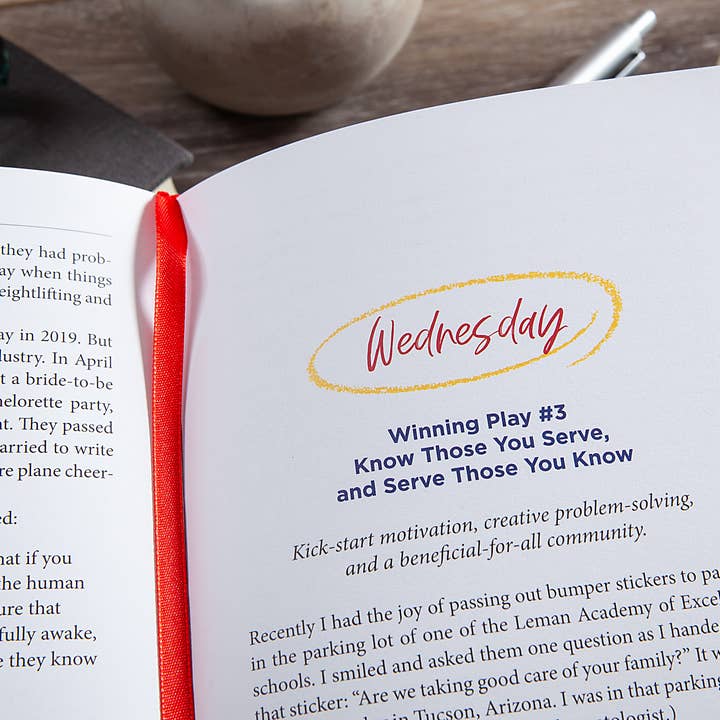 they had prob-
ay when things
eightlifting and
ay in 2019. But
dustry. In April
t a bride-to-be
helorette party,
nt. They passed
arried to write
re plane cheer-
ed:
hat if you
the human
ure that
fully awake,
e they know
Wednesday
Winning Play #3
Know Those You Serve,
and Serve Those You Know
Kick-start motivation, creative problem-solving,
and a beneficial-for-all community.
Recently I had the joy of passing out bumper stickers to pa
in the parking lot of one of the Leman Academy of Excel
schools. I smiled and asked them one question as I hande
that sticker: “Are we taking good care of your family?” It w
in Tucson, Arizona. I was in that parking